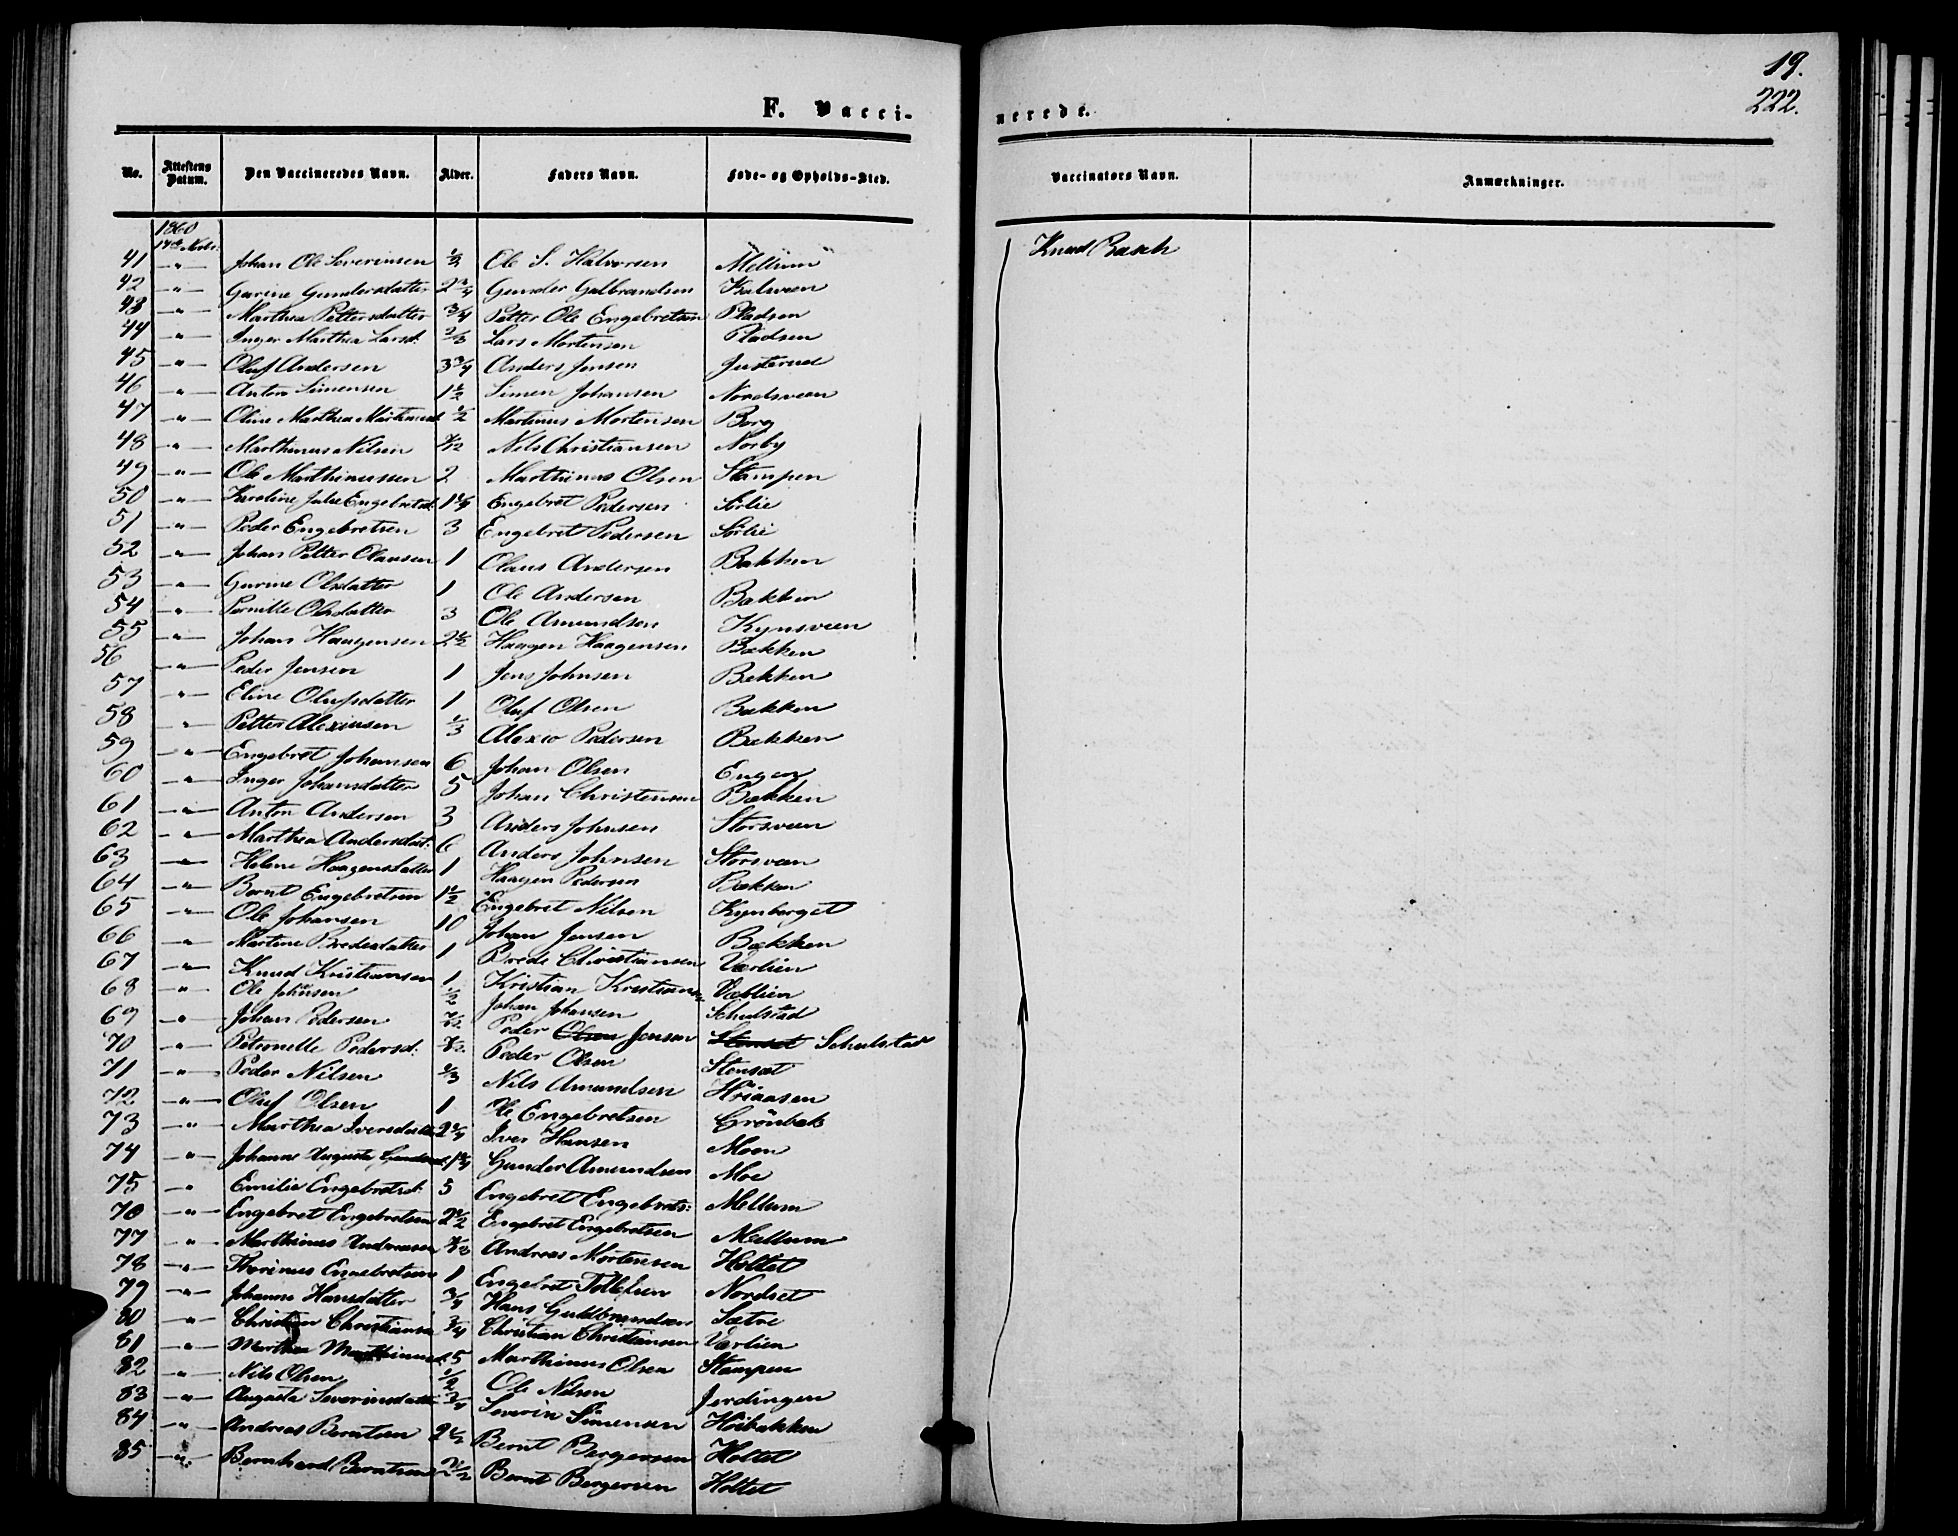 19.
222.
F. Vacci-
nerede.
No. Attestens Datum. Den Vaccineredes Navn. Alder. Faders Navn. Føde- og Opholds-Sted.
Vaccinators Navn. Anmærkninger.
1860
Knud Basch
41 -"- Johan Ole Severinsen Ole S. Halvorsen Mellum
42 -"- Gurine Gundersdatter 2 3/4 Gunder Gulbrandsen
43 -"- Marthea Pettersdatter 3/4 Petter Ole Engebretsen Pladsen
44 -"- Inger Marthea Larsd. 2/3 Lars Mortensen Pladsen
45 -"- Oluf Andersen 3 3/4 Anders Jensen Justerud
46 -"- Anton Simensen 1 1/2 Simen Johansen Nordsveen
47 -"- Oline Marthea 1/2 Martinus Mortensen Borg
48 -"- Marthinus Nilsen Nils Christiansen Norby
49 -"- Ole Marthinussen 2 Marthinus Olsen Stampen
50 -"- Karoline Julie Engebretsd. Engebret Pedersen Sørlie
51 -"- Peder Engebretsen 3 Engebret Pedersen Sørlie
52 -"- Johan Petter Olausen 1 Olaus Andersen Bakken
53 -"- Gurine Olsdatter 1 Ole Andersen Bakken
54 -"- Pernille Olsdatter 3 Ole Amundsen Kynsveen
55 -"- Johan Haagensen 2 1/2 Haagen Haagensen Bækken
56 -"- Peder Jensen 1 Jens Johnsen Bækken
57 -"- Eline Olufsdatter 1 Oluf Olsen Bækken
58 -"- Petter Alexiusen 1/3 Pedersen Bækken
59 -"- Engebret Johansen 6 Johan Olsen Engen
60 -"- Inger Johansdatter 5 Johan Christensen Bækken
61 -"- Anton Andersen 3 Anders Johnsen Storsveen
62 -"- Marthea Andersdat. 6 Anders Johnsen Storsveen
63 -"- Helene Haagensdatter 1 Haagen Pedersen Bækken
64 -"- Bernt Engebretsen 1 1/2 Engebret Nilsen Kynberget
65 -"- Ole Johansen 10 Johan Jensen Bækken
66 -"- Martine Bredesdatter 1 Brede Christiansen Værlien
67 -"- Knud Kristiansen 1 Kristian Kristiansen
68 -"- Ole Johansen 1/2 Johan Johansen Schulstad
69 -"- Johan Pedersen Peder Olsen Jensen Stenset Schulstad
70 -"- Petronelle Pedersd. Peder Olsen Stenset
71 -"- Peder Nilsen Nils Amundsen
72 -"- Oluf Olsen 1 Ole Engebretsen Grönbæk
73 -"- Marthea Iversdatter Iver Hansen Moen
74 -"- Johanne Augusta Gunder Amundsen Moe
75 -"- Emilie Engebretsd. 5 Engebret Engebrets: Mellum
76 -"- Engebret Engebretsen 2 1/2 Engebret Engebretsen Mellum
77 -"- Marthinus Andreasen Andreas Mortensen Holtet
78 -"- Thorinus Engebretsen 1 Engebret Tollefsen Nordset
79 -"- Johanne Hansdatter 3/4 Hans Guldbrandsen Sætre
80 -"- Christian Christiansen 3/4 Christian Christiansen Værlien
81 -"- Marthea 5 Marthinus Olsen Stampen
82 -"- Nils Olsen 1/2 Ole Nilsen Jerdingen
83 -"- Augusta Severinsdatter 3/4 Severin Simensen Höibakken
84 -"- Andreas Berntsen 2 1/2 Bernt Bergersen Holtet
85 -"- Bernhard Berntsen Bernt Bergersen Holtet